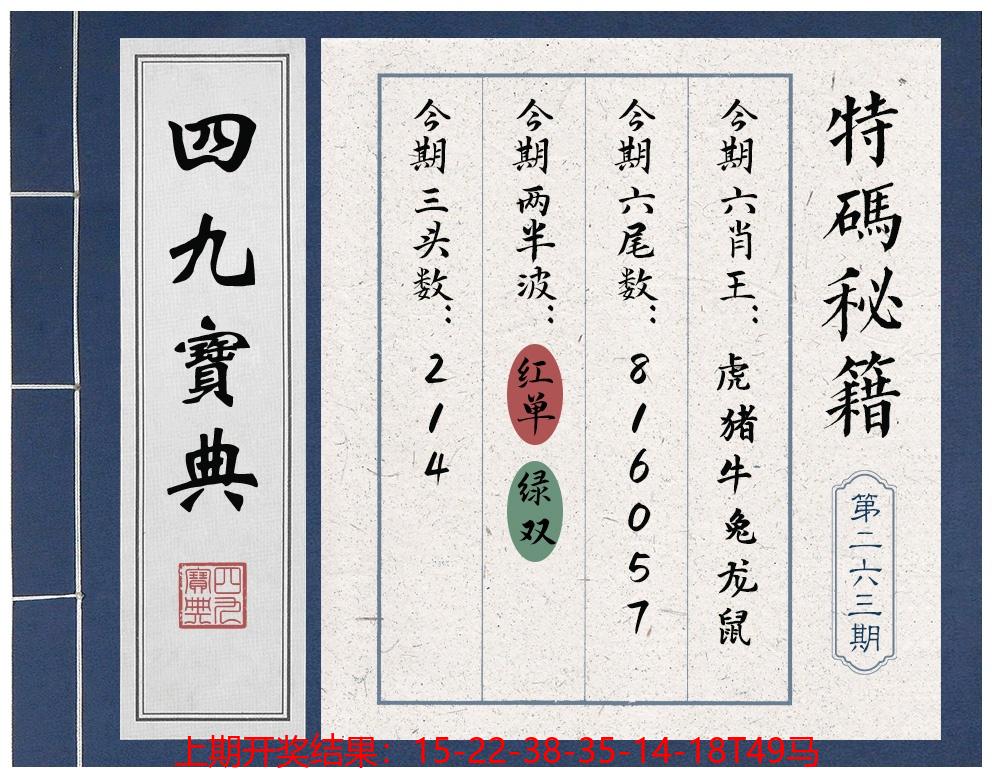 特碼秘籍
第二六三期
今期六肖王：虎猪牛兔龙鼠
今期六尾数：816057
今期两半波：红单 绿双
今期三头数：214
四九寶典
四九寶典
上期开奖结果：15-22-38-35-14-18T49马